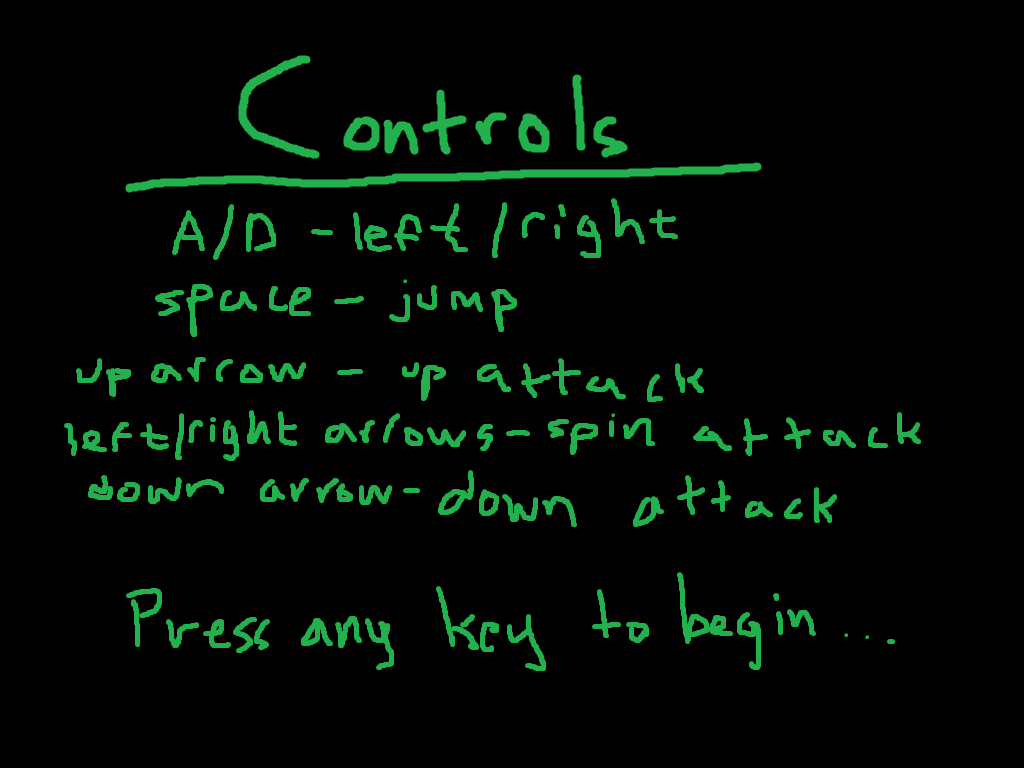 Controls
A/D - left/right
space - jump
up arrow - up attack
left/right arrows - spin attack
down arrow - down attack
Press any key to begin...